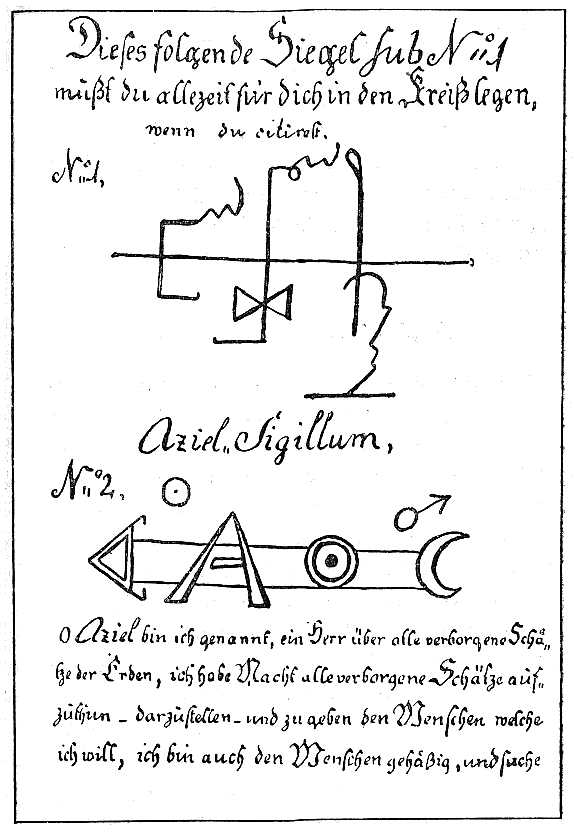 Dieses folgende Siegel sub No 1
mußt du allezeit für dich in den Kreiß legen,
wenn du citirest.
No 1,
Aziel„ Sigillum,
No 2,
O Aziel bin ich genannt, ein Herr über alle verborgene Schä„
tze der Erden, ich habe Macht alle verborgene Schätze auf„
zuthun – darzustellen – und zu geben den Menschen welche
ich will, ich bin auch den Menschen gehäßig, und suche